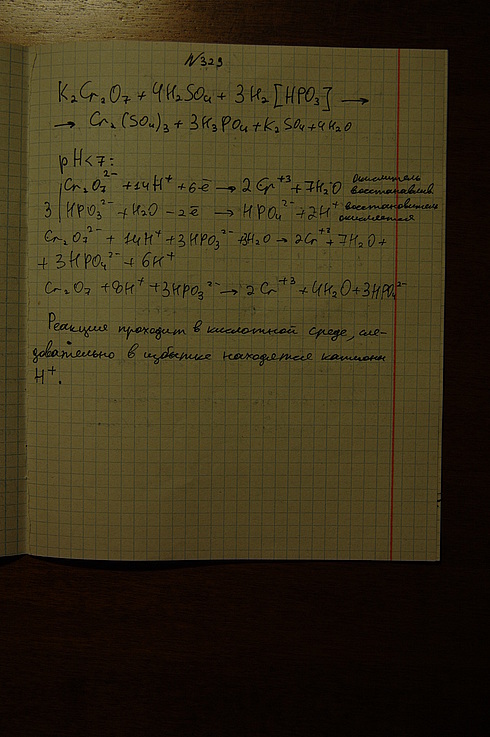 N 329
K₂Cr₂O₇ + 4H₂SO₄ + 3H₂[HPO₃] →
→ Cr₂(SO₄)₃ + 3H₃PO₄ + K₂SO₄ + 4H₂O
pH<7:
Cr₂O₇²⁻ + 14H⁺ + 6ē → 2Cr⁺³ + 7H₂O окислитель восстанавлив
3 | HPO₃²⁻ + H₂O - 2ē → HPO₄²⁻ + 2H⁺ восстановитель окисляется
Cr₂O₇²⁻ + 14H⁺ + 3HPO₃²⁻ + 3H₂O → 2Cr⁺³ + 7H₂O +
+ 3HPO₄²⁻ + 6H⁺
Cr₂O₇ + 8H⁺ + 3HPO₃²⁻ → 2Cr⁺³ + 4H₂O + 3HPO₄²⁻
Реакция проходит в кислотной среде, сле-
довательно в избытке находятся катионы
H⁺.